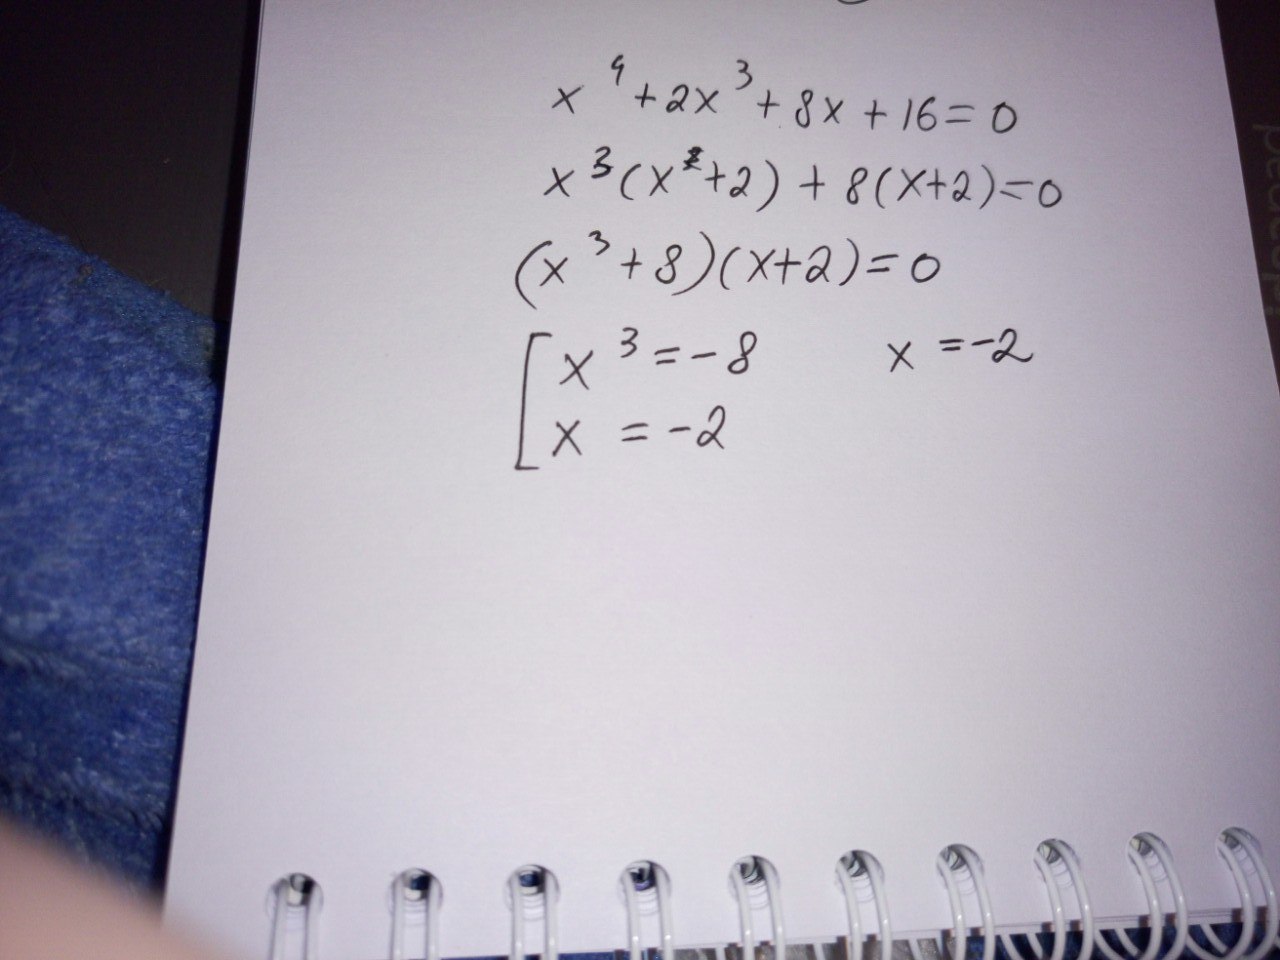 x⁴ + 2x³ + 8x + 16 = 0
x³(x + 2) + 8(x + 2) = 0
(x³ + 8)(x + 2) = 0
[ x³ = -8 x = -2
x = -2